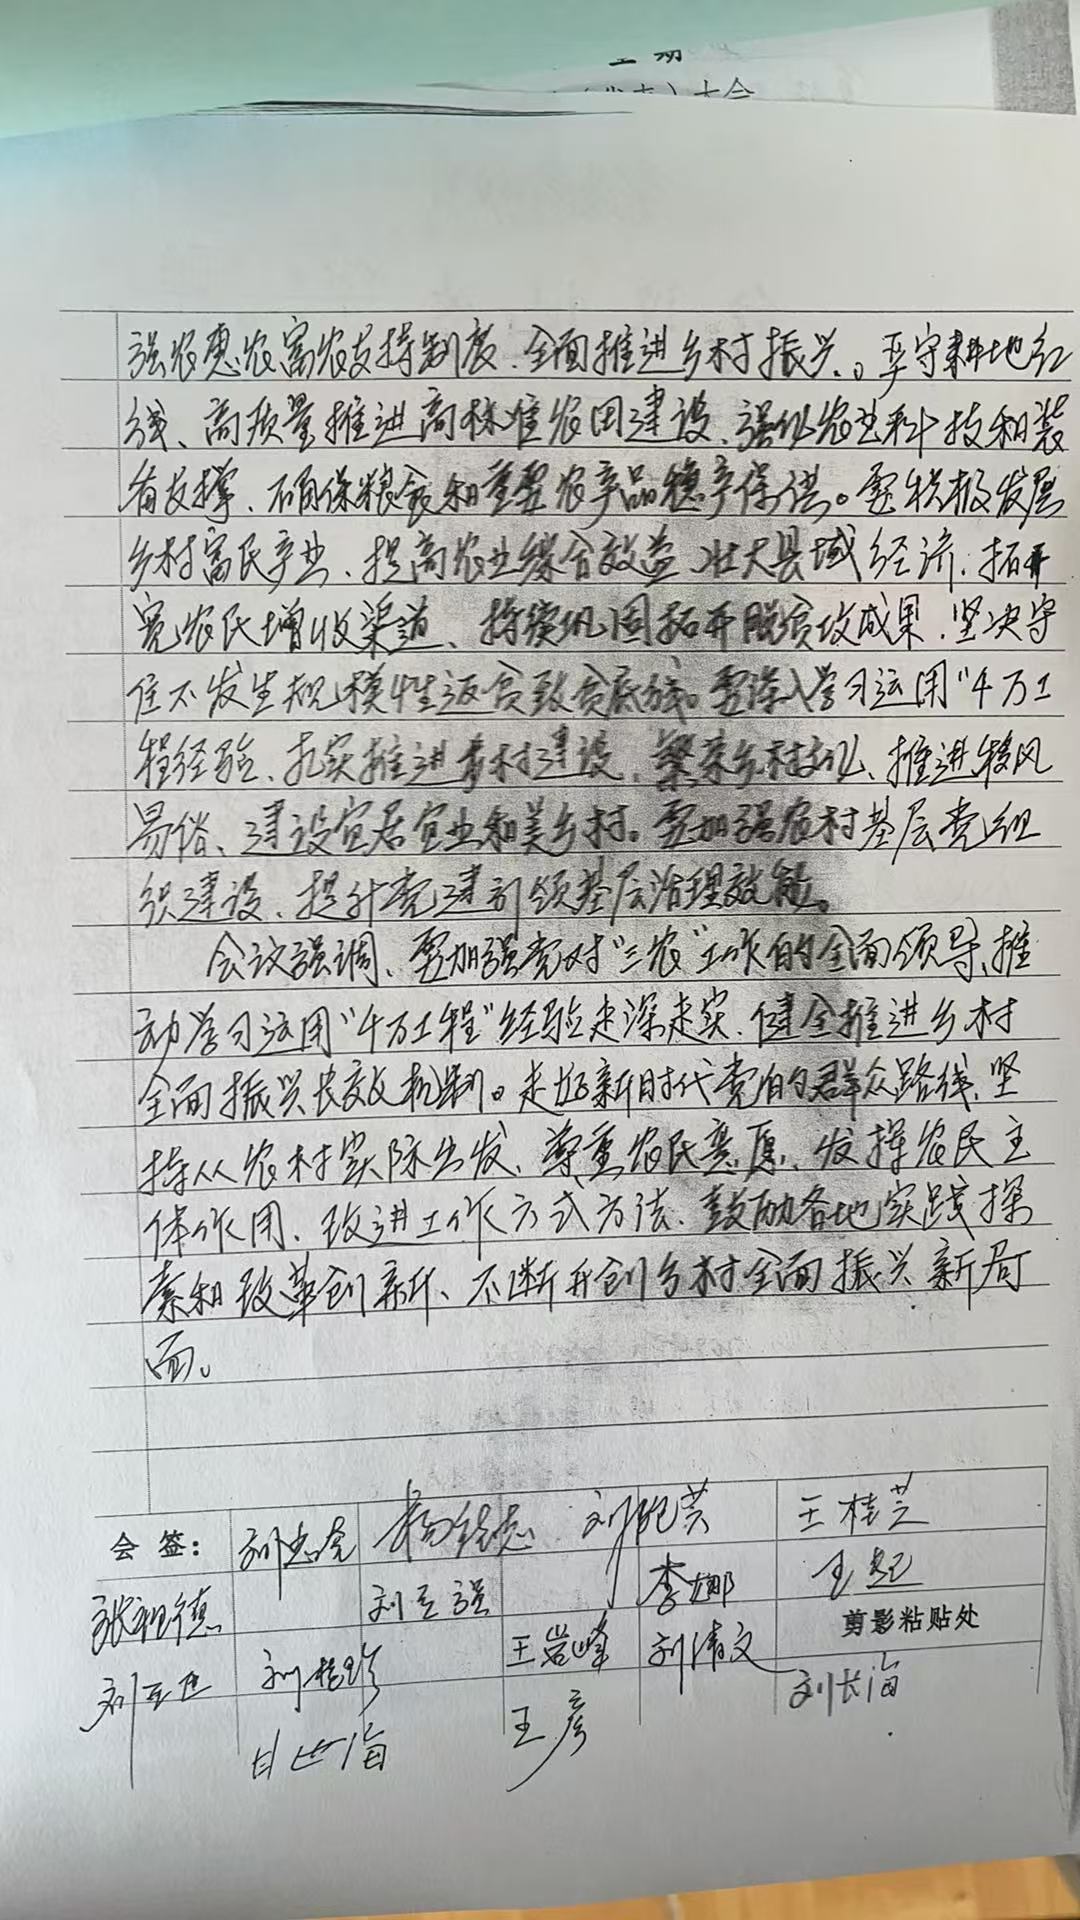 强农惠农富农支持制度、全面推进乡村振兴。严守耕地红
线、高质量推进高标准农田建设、强化农业科技和装
备支撑、确保粮食和重要农产品稳产保供。要积极发展
乡村富民产业、提高农业综合效益、壮大县域经济、拓
宽农民增收渠道、持续巩固拓开脱贫攻成果、坚决守
住不发生规模性返贫致贫底线。要深入学习运用“千万工
程经验、扎实推进乡村建设、繁荣乡村文化、推进移风
易俗、建设宜居宜业和美乡村。要加强农村基层党组
织建设、提升党建引领基层治理效能。
会议强调、要加强党对“三农”工作的全面领导、推
动学习运用“千万工程”经验走深走实、健全推进乡村
全面振兴长效机制。走好新时代党的群众路线、坚
持从农村实际出发、尊重农民意愿、发挥农民主
体作用、改进工作方式方法、鼓励各地实践探
索和改革创新、不断开创乡村全面振兴新局
面。
会 签： 刘志亮 王桂芝
刘立强 李娜 王起
王岩峰 刘清文 剪影粘贴处
王彦 刘长海